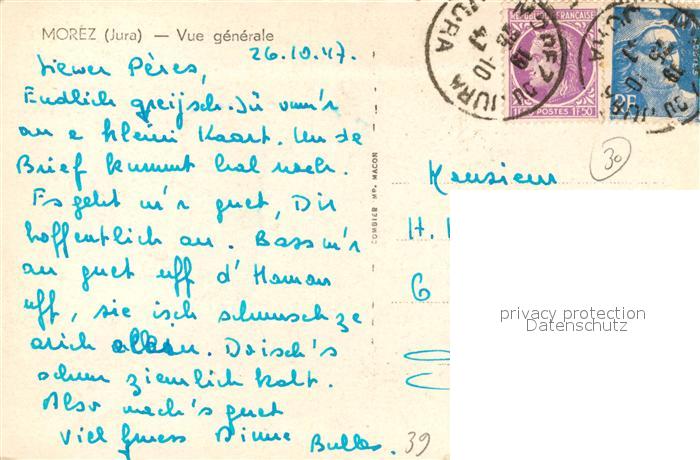 MOREZ (Jura) — Vue générale
26.10.47.
Liewer Péres,
Endlich greijsch Dü vum'r
au e kleini Kaart. Un de
Brief kummt bal noch.
Es geht m'r guet, Dir
hoffentlich au. Bass m'r
au guet uff d'Maman
uff, sie isch schunsch ze
arich allein. Do isch's
schun ziemlich kalt.
Also mach's guet
Viel Gruess
COMBIER IMP. MACON
REPUBLIQUE FRANÇAISE
POSTES 1F50
JURA
30
Monsieur
H.
G
privacy protection
Datenschutz
39